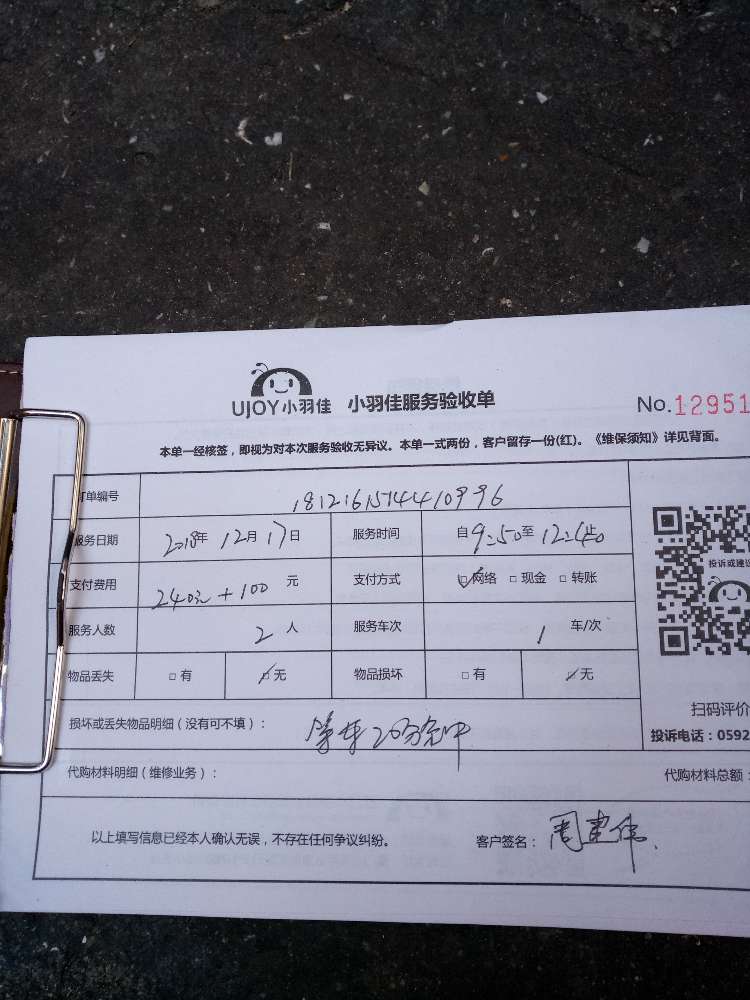 UJOY小羽佳 小羽佳服务验收单 No.12951
本单一经核签，即视为对本次服务验收无异议。本单一式两份，客户留存一份(红)。《维保须知》详见背面。
订单编号 18121615144410996
服务日期 2018年 12月 17日 服务时间 自 9:50 至 12:40 止
支付费用 240元 + 100 元 支付方式 □网络 □现金 □转账
服务人数 2 人 服务车次 1 车/次
物品丢失 □有 □无 物品损坏 □有 □无
投诉或建议
扫码评价
损坏或丢失物品明细（没有可不填）： 20分钟
投诉电话：0592
代购材料明细（维修业务）： 代购材料总额：
以上填写信息已经本人确认无误，不存在任何争议纠纷。 客户签名： 周建伟